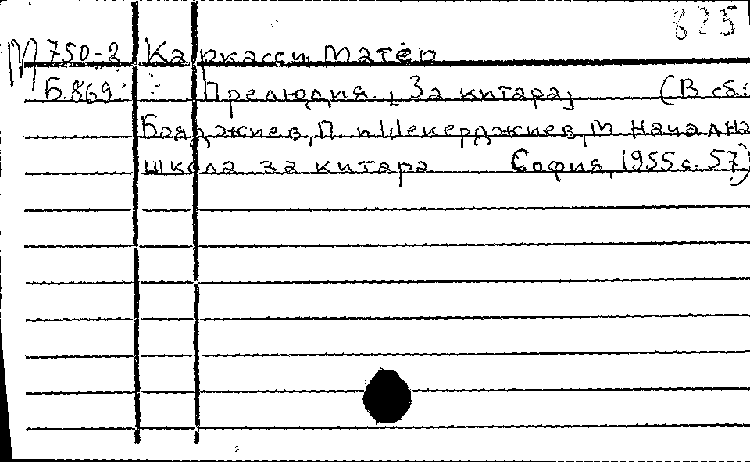 825
М 750-2 Каркасси Матео
Б.869 Прелюдия. /За китара/ (В сб:
Бояджиев, П. и Шекерджиев, М. Начална
школа за китара София, 1955 с. 57)